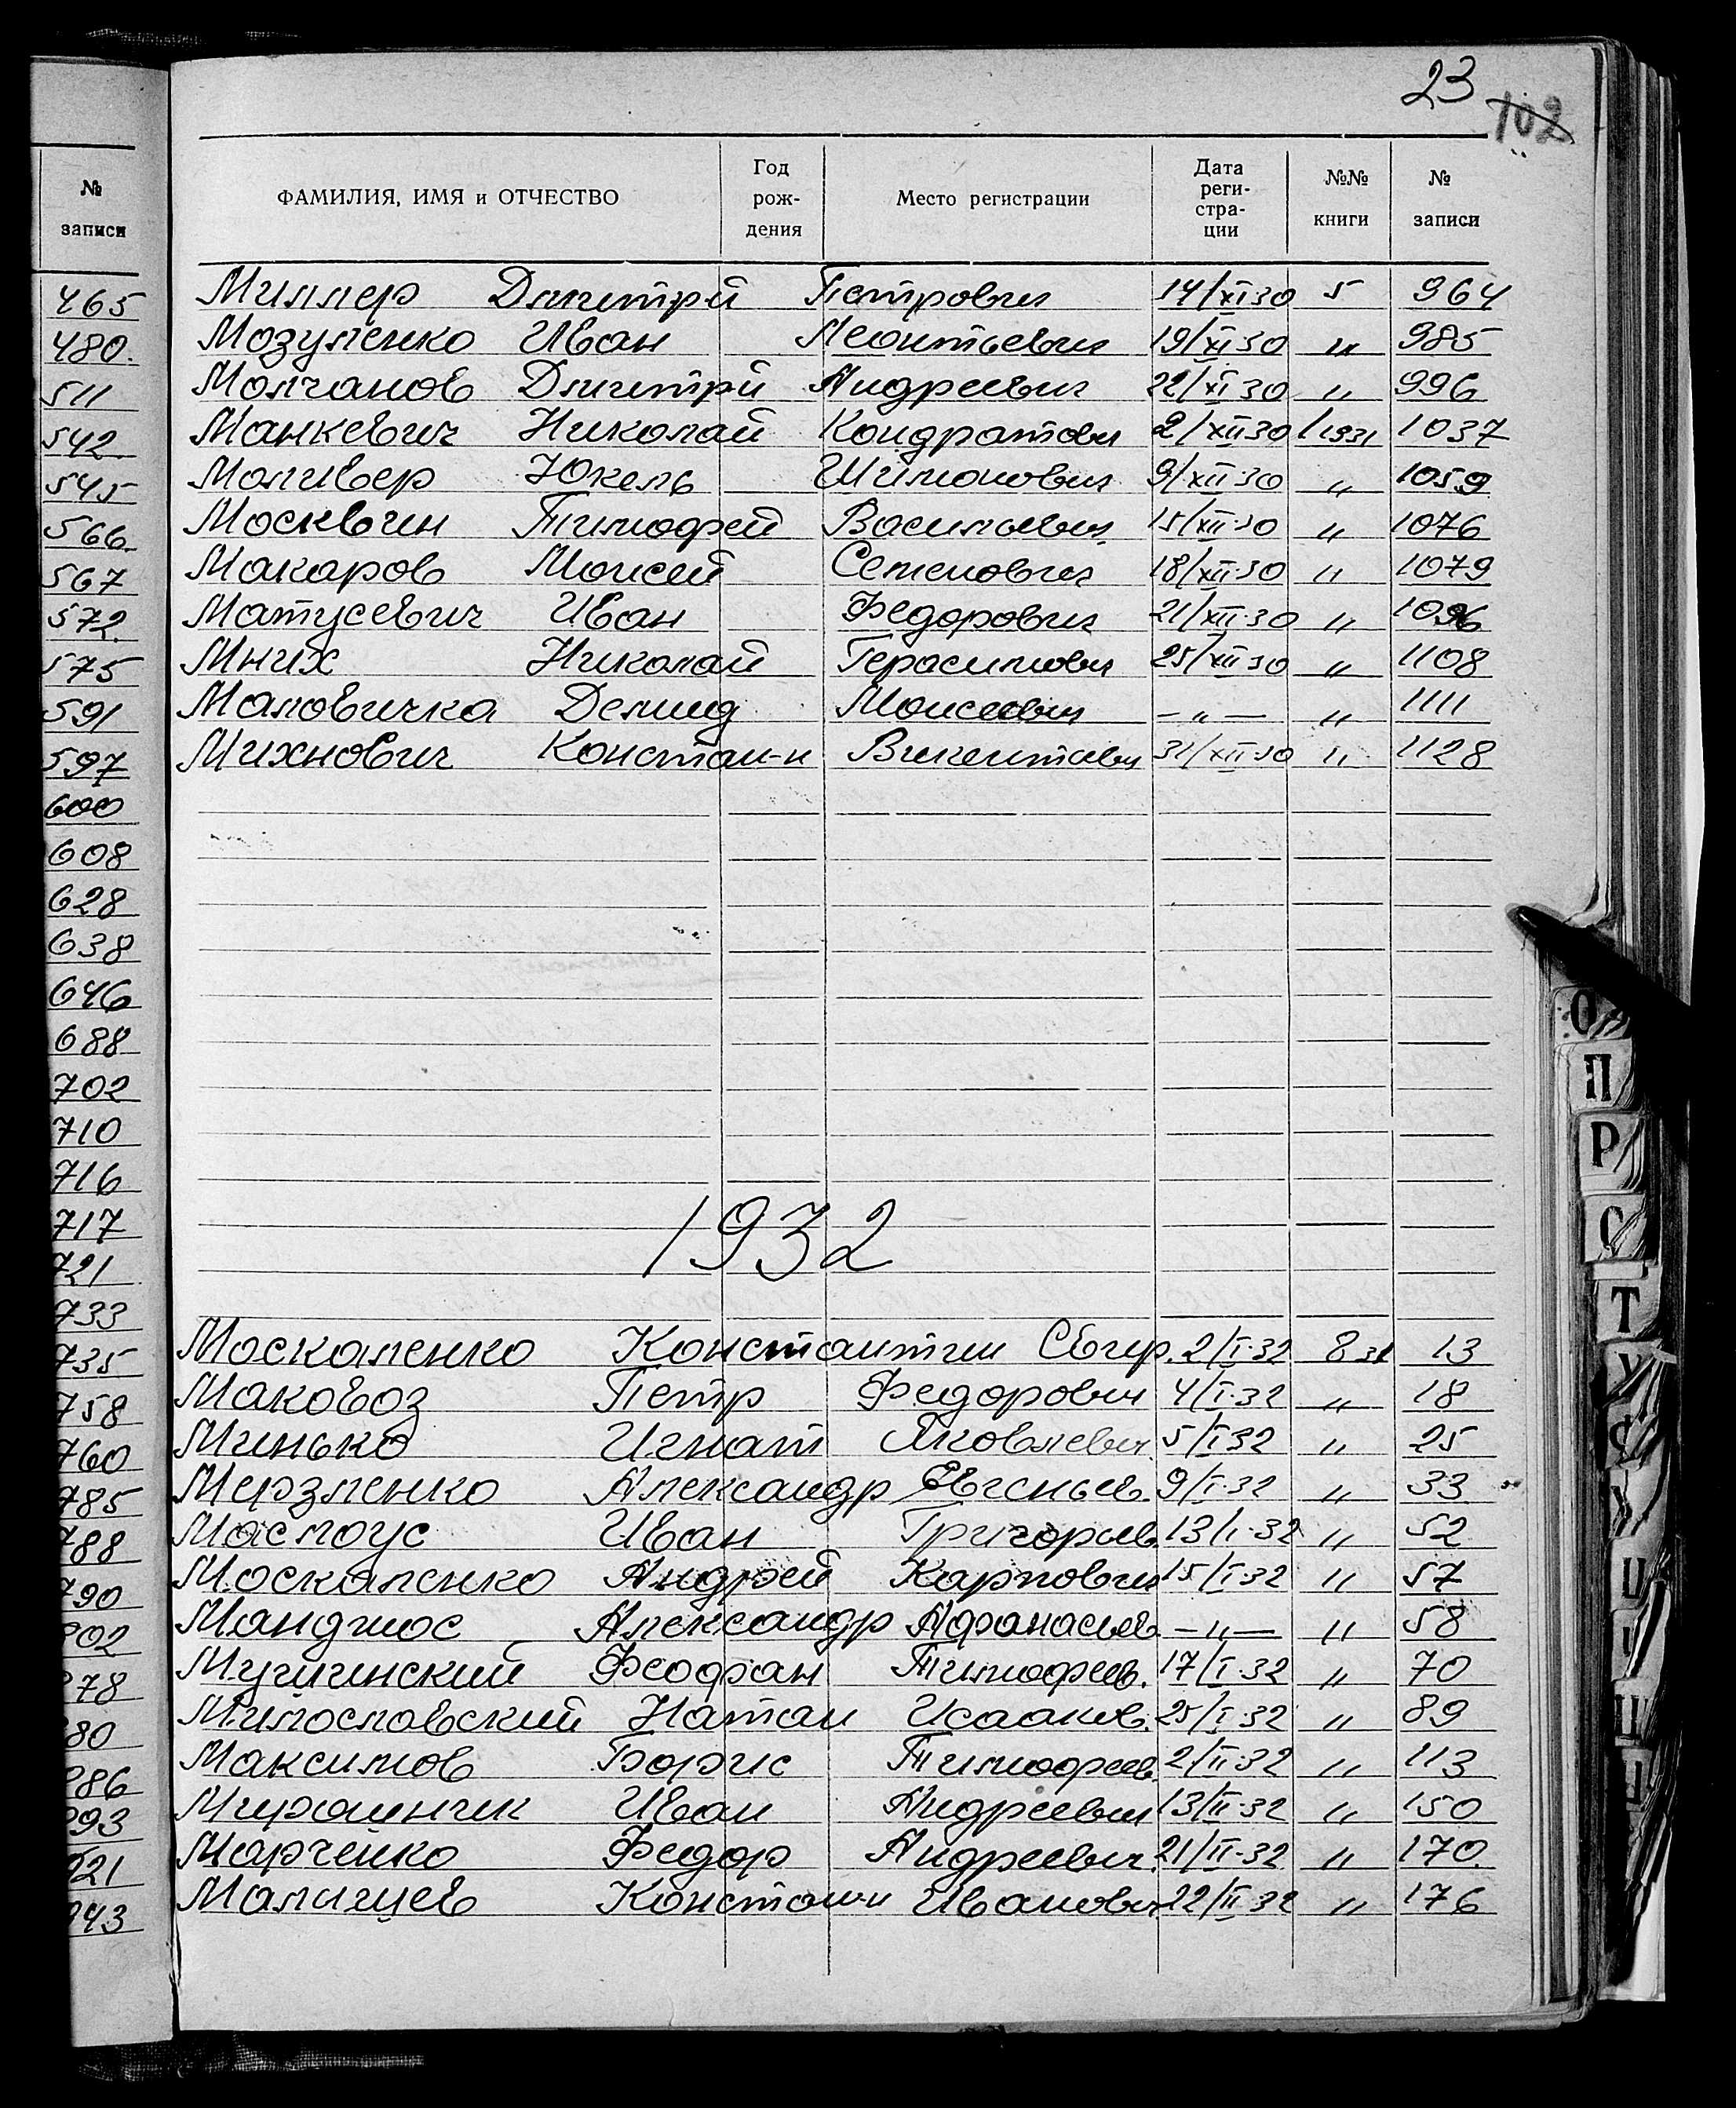 23
102
№ записи
ФАМИЛИЯ, ИМЯ и ОТЧЕСТВО Год рождения Место регистрации Дата регистрации №№ книги № записи
465
480.
511
542
545
566.
567
572.
575
591
597
600
608
628
638
646
688
702
710
716
717
721
733
735
758
760
785
788
790
802
878
880
886
893
921
943
Миллер Дмитрий Петрович 14/XI30 5 964
Мозуленко Иван Леонтьевич 19/XI30 " 985
Молчанов Дмитрий Андреевич 22/XI 30 " 996
Манкевич Николай Кондратович 2/XII30 1 1931 1037
Моливер Юкель Шимонович 9/XII 30 " 1059
Москвин Тимофей Васильевич 15/XII 30 " 1076
Макаров Моисей Семенович 18/XII 30 " 1079
Матусевич Иван Федорович 21/XII 30 " 1096
Мних Николай Герасимович 25/XII 30 " 1108
Маловичка Демид Моисеевич — " — " 1111
Михнович Констан-н Викентьевич 31/XII 30 " 1128
1932
Москаленко Константин Свир. 2/I-32 8 31 13
Маковоз Петр Федорович 4/I-32 " 18
Минько Игнат Яковлевич 5/I 32 " 25
Мерзленко Александр Евгеньев. 9/I-32 " 33
Маслоус Иван Григорьев 13/I-32 " 52
Москаленко Андрей Карпович 15/I 32 " 57
Манджос Александр Афанасьев — " — " 58
Феофан Тимофеев. 17/I 32 " 70
Милославский Натан Исааков. 25/I 32 " 89
Максимов Борис Тимофеев. 2/II-32 " 113
Иван Андреевич 13/II-32 " 150
Марченко Федор Андреевич 21/II-32 " 170
Малищев Констанин Иванович 22/II 32 " 176
О
П
Р
С
Т
У